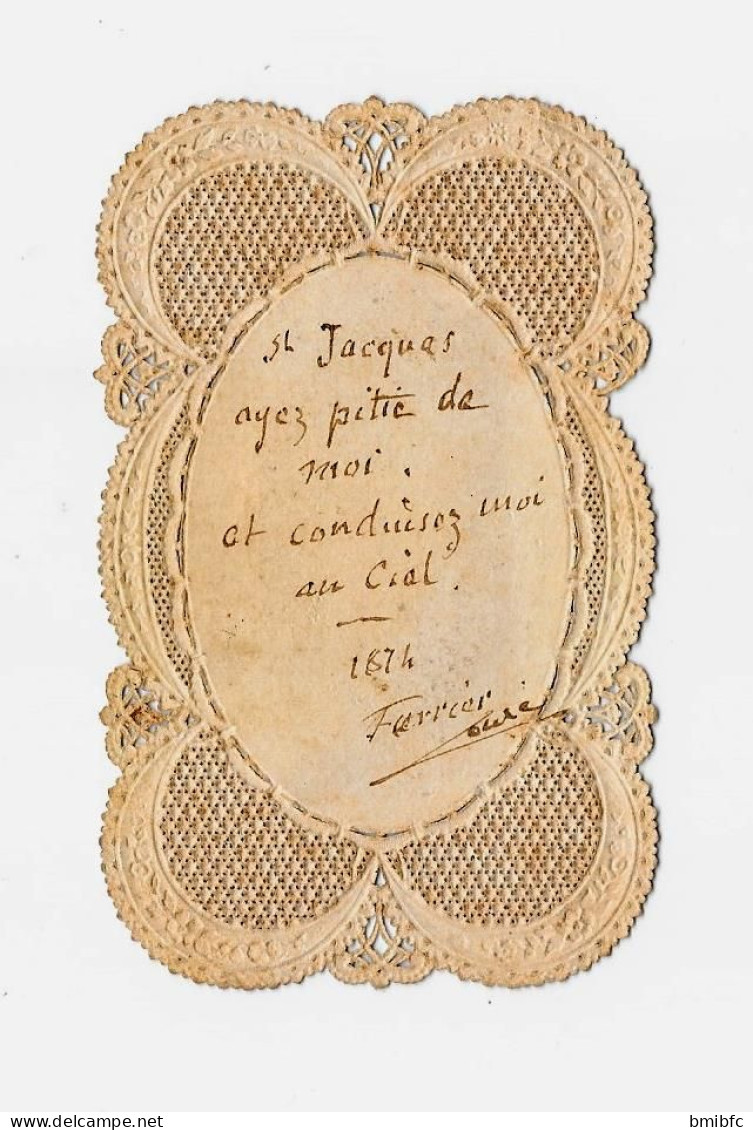 St Jacques
ayez pitié de
moi.
et conduisez moi
au Ciel.
1874
Ferrier
curé
bmibfc